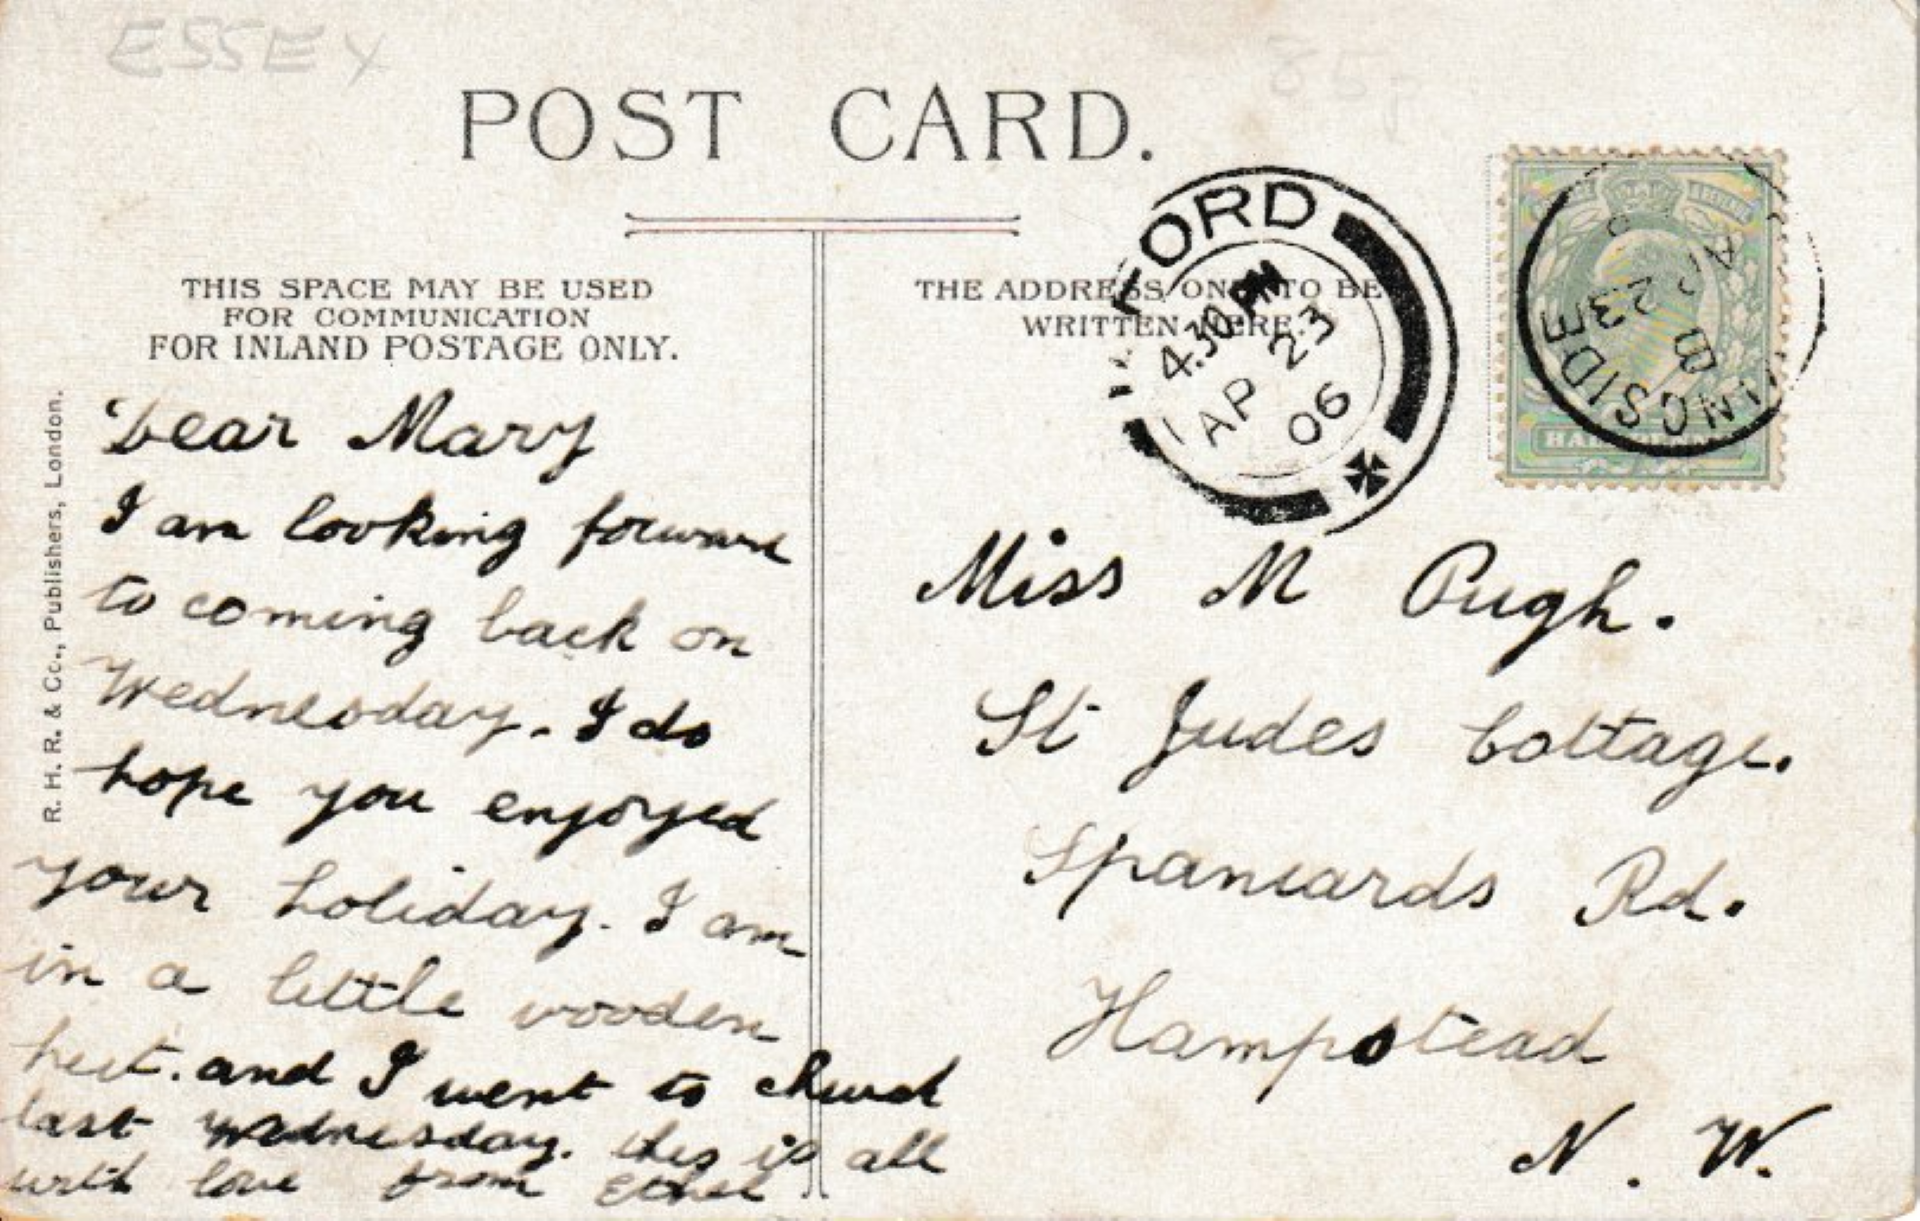 ESSEX
85p
POST CARD.
THIS SPACE MAY BE USED
FOR COMMUNICATION
FOR INLAND POSTAGE ONLY.
THE ADDRESS ONLY TO BE
WRITTEN HERE.
FORD
4.30 PM
AP 23
06
INGSIDE
B
AP 23
HALFPENNY
R. H. R. & Co., Publishers, London.
Dear Mary
I am looking forward
to coming back on
Wednesday. I do
hope you enjoyed
your holiday. I am
in a little wooden
hut. and I went to church
last Wednesday. this is all
with love from Ethel
Miss M Pugh.
St Judes Cottage.
Spaniards Rd.
Hampstead
N. W.